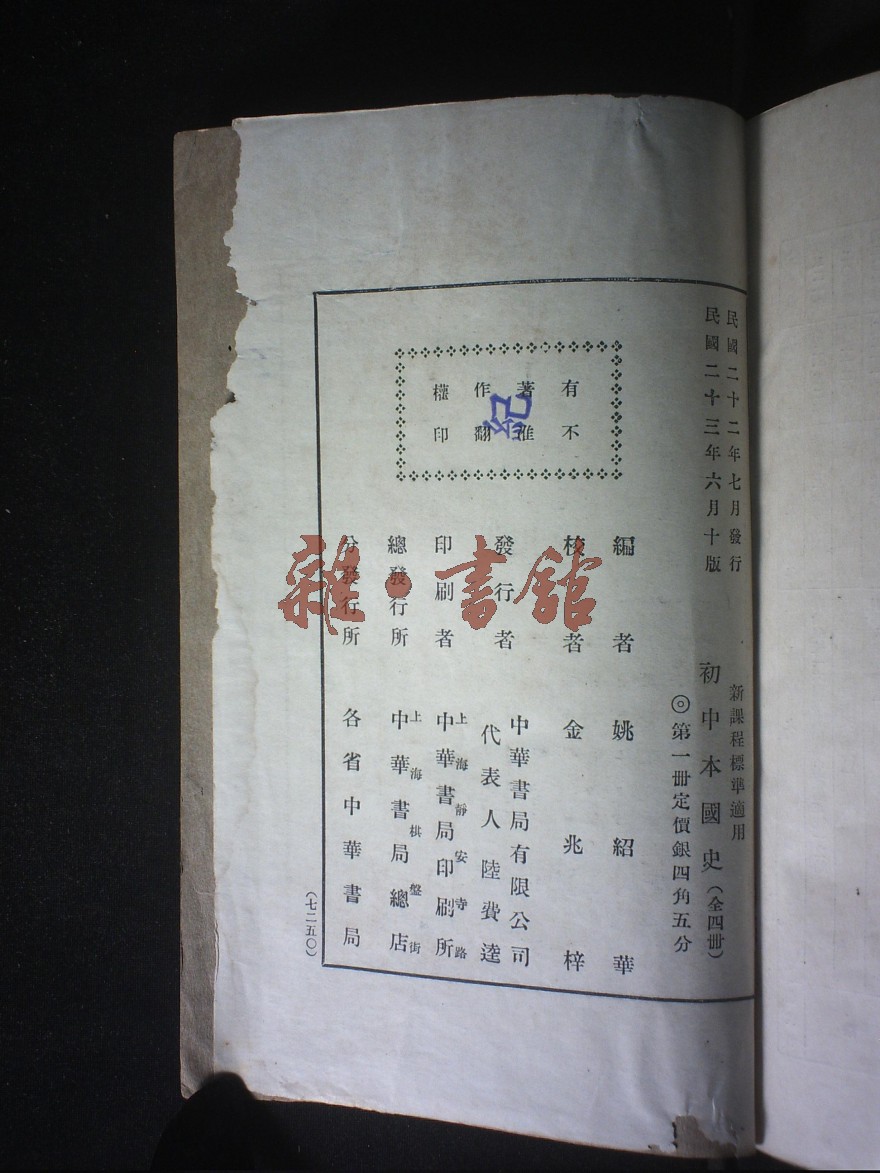 民國二十二年七月發行
民國二十三年六月十版
新課程標準適用
初中本國史（全四册）
◎第一册定價銀四角五分
有著作權
不准翻印
紀
編者 姚紹華
校者 金兆梓
發行者 中華書局有限公司
代表人 陸費逵
印刷者 上海靜安寺路
中華書局印刷所
總發行所 上海棋盤街
中華書局總店
分發行所 各省中華書局
（七二五〇）
雜·書館